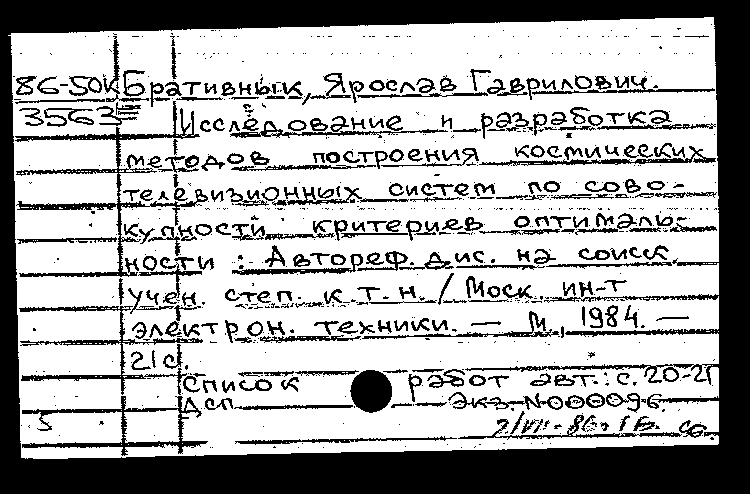 86-50К Бративнык, Ярослав Гаврилович.
3563 Исследование и разработка
методов построения космических
телевизионных систем по сово-
купности критериев оптималь-
ности : Автореф. дис. на соиск.
учен. степ. к.т.н. / Моск. ин-т
электрон. техники. — М., 1984. —
21 с.
Список работ авт.: с. 20-21
ДСП Экз. N000096.
5